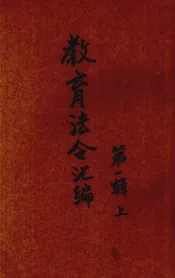 教育法令汇编
第一辑上